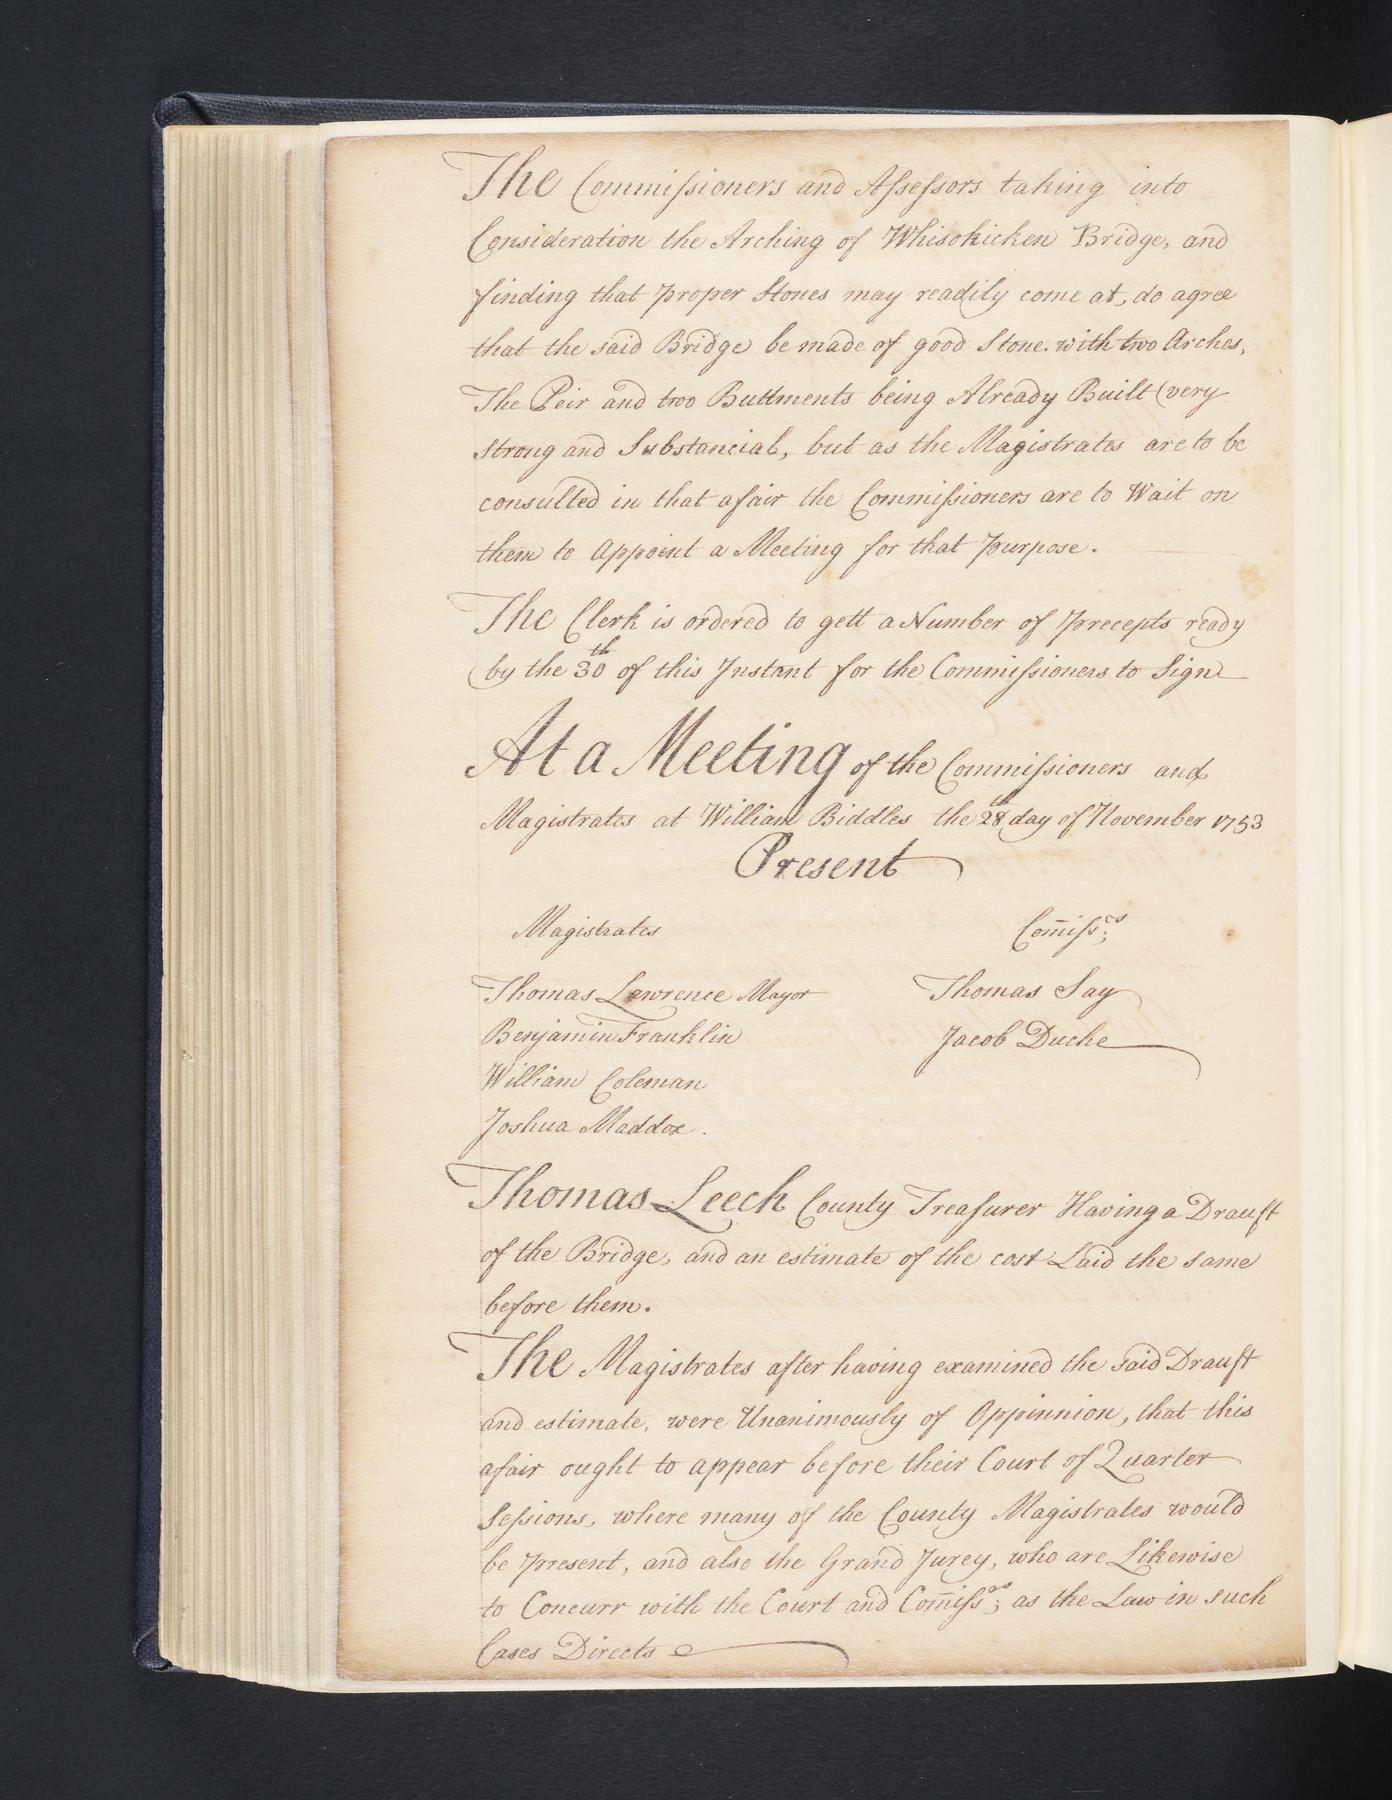 The Commissioners and Assessors taking into
Consideration the Arching of Whisohicken Bridge, and
finding that proper Stones may readily come at, do agree
that the said Bridge be made of good Stone with two Arches,
The Peir and two Buttments being Already Built (very
strong and Substancial, but as the Magistrates are to be
consulted in that afair the Commissioners are to Wait on
them to Appoint a Meeting for that purpose.
The Clerk is ordered to gett a Number of Precepts ready
by the 30th of this Instant for the Commissioners to Sign
At a Meeting of the Commissioners and
Magistrates at William Biddles the 28th day of November 1753
Present
Magistrates Com̄issrs;
Thomas Lawrence Mayor Thomas Say
Benjamin Franklin Jacob Duche
William Coleman
Joshua Maddox.
Thomas Leech County Treasurer Having a Drauft
of the Bridge, and an estimate of the cost Laid the same
before them.
The Magistrates after having examined the said Drauft
and estimate, were Unanimously of Oppinnion, that this
afair ought to appear before their Court of Quarter
Sessions, where many of the County Magistrates would
be present, and also the Grand Jurey, who are Likewise
to Concurr with the Court and Com̄issrs; as the Law in such
Cases Directs